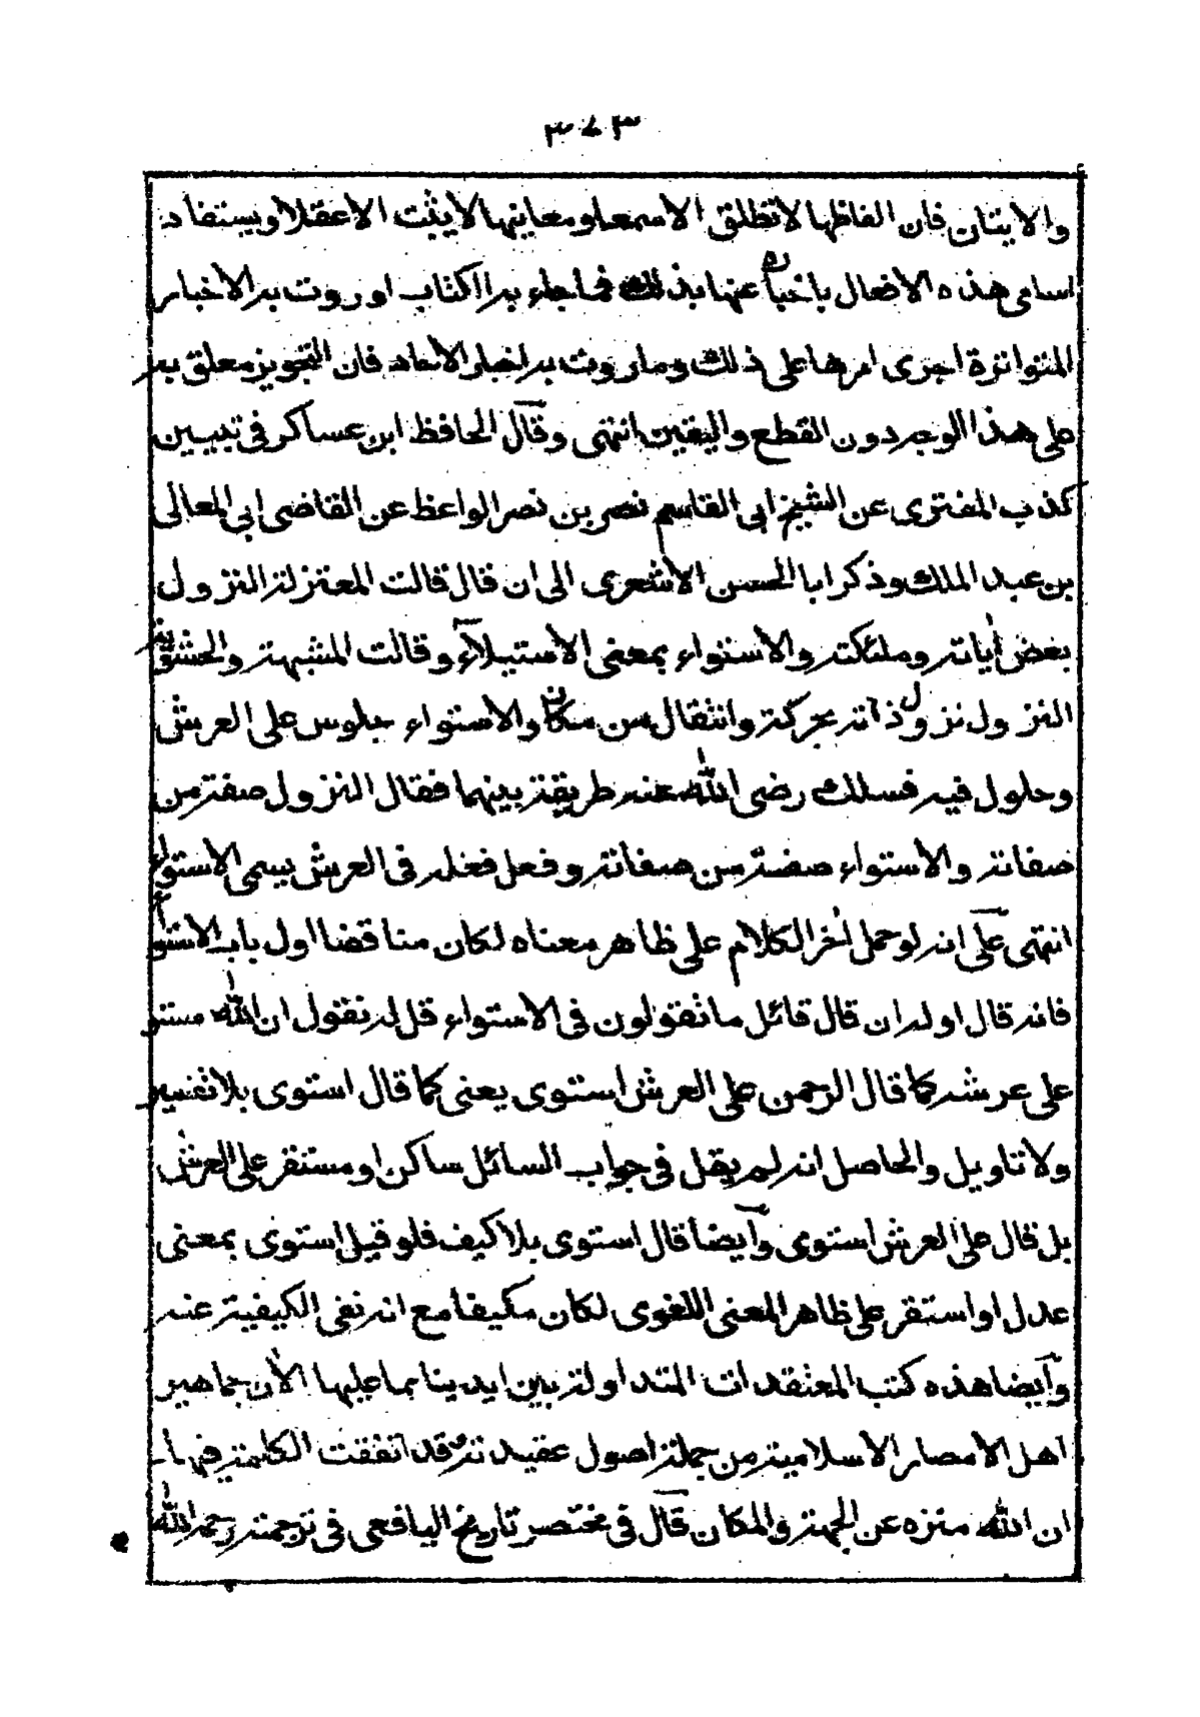 ٣٧٣
والاتيان فان الفاظها لا تطلق الا سمعا ومعاينها لا يثبت الا عقلا ويستفاد
اسامى هذه الافعال باخباره عنها بذلك فما جاء به الكتاب او روت به الاخبار
المتواترة اجرى امرها على ذلك وما روت به اخبار الآحاد فان التجويز معلق به
على هذا الوجه دون القطع واليقين انتهى وقال الحافظ ابن عساكر فى تبيين
كذب المفترى عن الشيخ ابى القاسم نصر بن نصر الواعظ عن القاضى ابى المعالى
بن عبد الملك وذكر ابا الحسن الاشعرى الى ان قال قالت المعتزلة النزول
بعض اياته وملئكته والاستواء بمعنى الاستيلاء وقالت المشبهة والحشوية
النزول نزول ذاته بحركة وانتقال من مكان والاستواء جلوس على العرش
وحلول فيه فسلك رضى الله عنه طريقة بينهما فقال النزول صفة من
صفاته والاستواء صفة من صفاته وفعل فعله فى العرش يسمى الاستواء
انتهى على انه لو حمل اخر الكلام على ظاهر معناه لكان مناقضا اول باب الاستواء
فانه قال اوله ان قال قائل ما تقولون فى الاستواء قل له نقول ان الله مستو
على عرشه كما قال الرحمن على العرش استوى يعنى كما قال استوى بلا تفسير
ولا تاويل والحاصل انه لم يقل فى جواب السائل ساكن او مستقر على العرش
بل قال على العرش استوى وايضا قال استوى بلا كيف فلو قيل استوى بمعنى
عدل او استقر على ظاهر المعنى اللغوى لكان مكيفا مع انه نفى الكيفية عنه
وايضا هذه كتب المعتقدات المتداولة بين ايدينا بما عليها الان جماهير
اهل الامصار الاسلامية من جملة اصول عقيدته قد اتفقت الكلمة فيها
ان الله منزه عن الجهة والمكان قال فى مختصر تاريخ اليافعى فى ترجمته رحمه الله